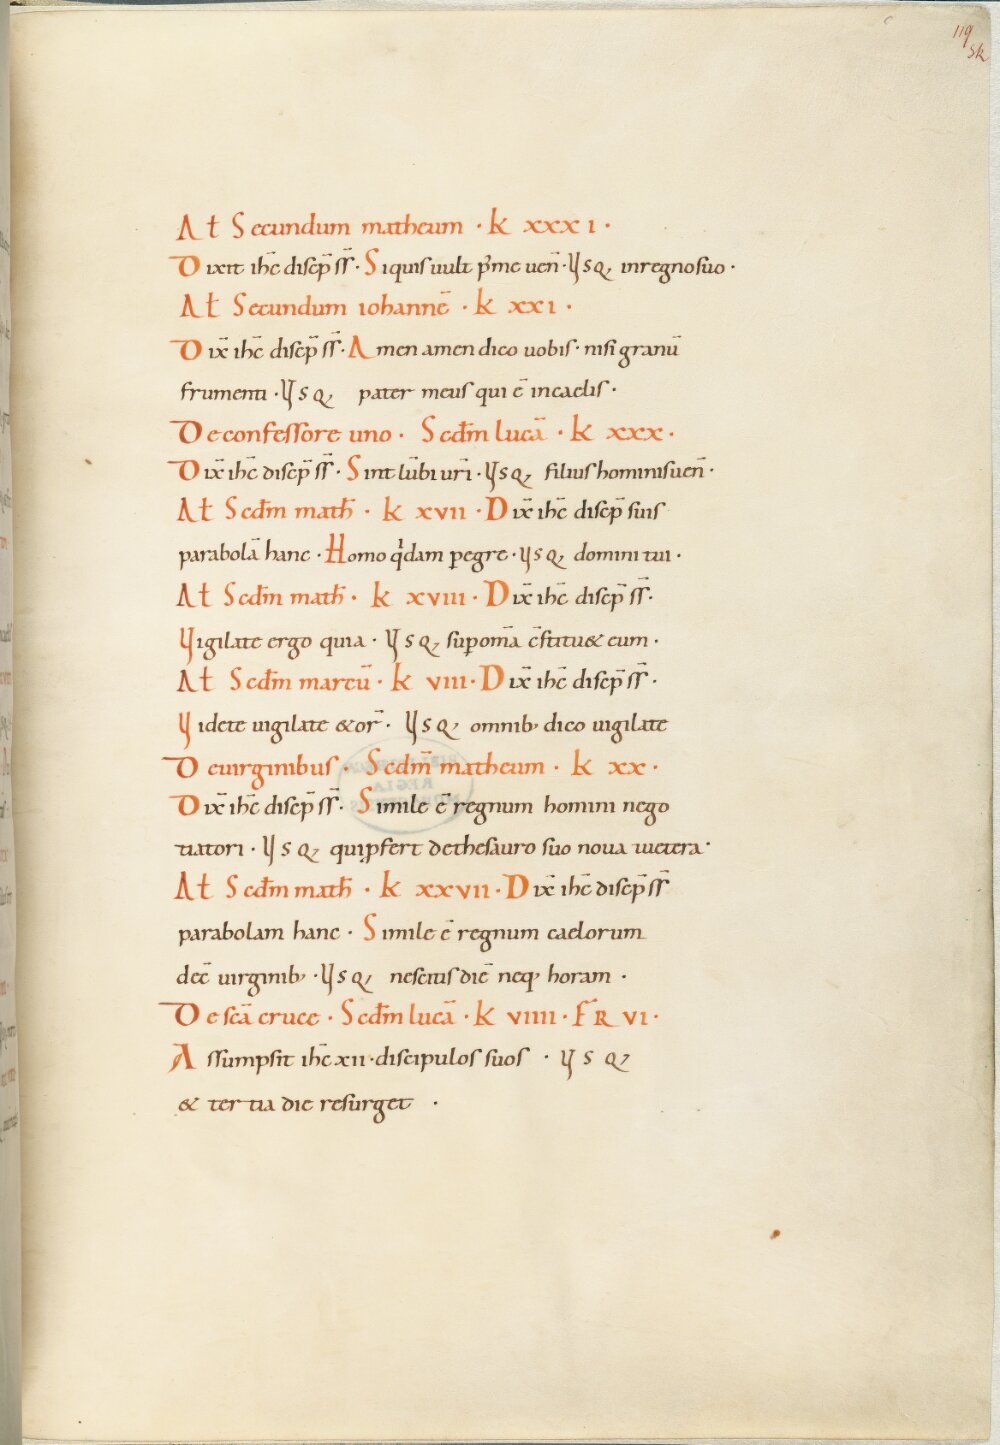 119
sk
At Secundum matheum · k xxxi ·
Dixit ih̅c discip̅ ss̅ · Siquis uult p̱ me uen̅ · Usq; inregno suo ·
At Secundum iohanne̅ · k xxi ·
Dix̅ ih̅c discip̅ ss̅ · Amen amen dico uobis · nisi granu̅
frumenti · Usq; pater meus qui e̅ incaelis ·
De confessore uno · Scdm̅ luca̅ · k xxx ·
Dix̅ ih̅c discip̅ ss̅ · Sint lu̅bi ur̅i · Usq; filius hominis uen̅ ·
At Scdm̅ math̅ · k xvii · Dix̅ ih̅c discip̅ suis
parabola̅ hanc · Homo qͥdam p̱egre · Usq; domini tui ·
At Scdm̅ math̅ · k xviii · Dix̅ ih̅c discip̅ ss̅ ·
Uigilate ergo quia · Usq; sup̱ om̅a c̅stitu& eum ·
At Scdm̅ marcu̅ · k viii · Dix̅ ih̅c discip̅ ss̅ ·
Uidete uigilate &or̅ · Usq; omnib; dico uigilate
De uirginibus · Scdm̅ matheum · k xx ·
Dix̅ ih̅c discip̅ ss̅ · Simile e̅ regnum homini nego
tiatori · Usq; qui p̱fert dethesauro suo noua uetera ·
At Scdm̅ math̅ · k xxvii · Dix̅ ih̅c discip̅ ss̅
parabolam hanc · Simile e̅ regnum caelorum
dec̅ uirginib; · Usq; nescitis die̅ neq; horam ·
De sc̅a cruce · Scdm̅ luca̅ · k viiii · FR̅ vi ·
Assumpsit ih̅c xii · discipulos suos · usq;
& tertia die resurget ·